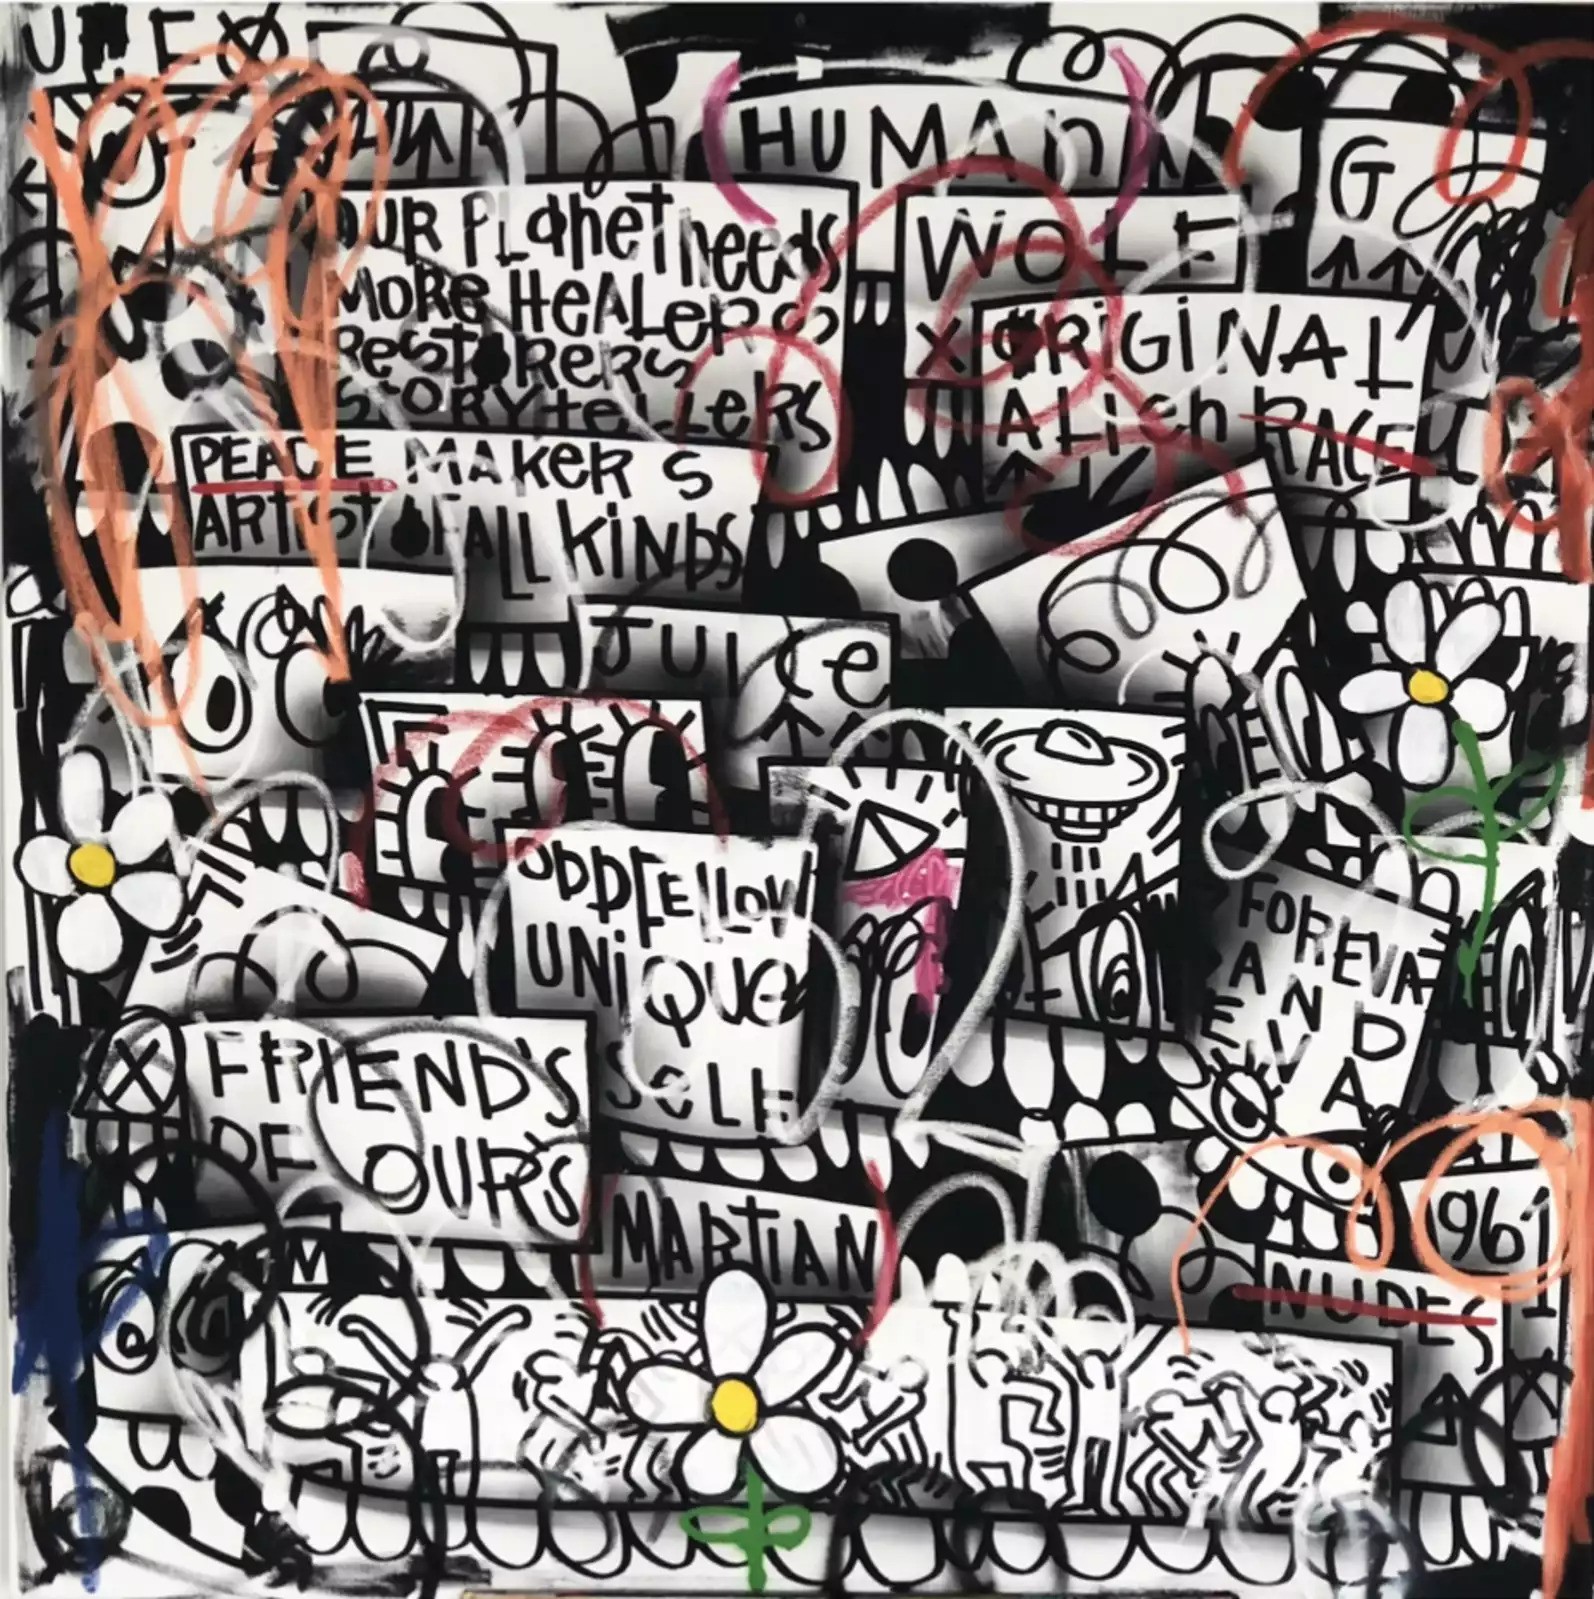 HUMAN
G
OUR PLANET needs
MORE HeALeRS
ReSTORERS
STORYteLLeRS
WOLF
X ORiGiNAL
ALien RACE
PEACE MAKeR S
ARTist OF ALL KiNDS
JUICe
ODDFELLOW
UNiQUe
SELF
FOREVA
AND
EVA
DA
X FRIEND'S
OF OUR'S
MARTIAN
1961
NUDES
M